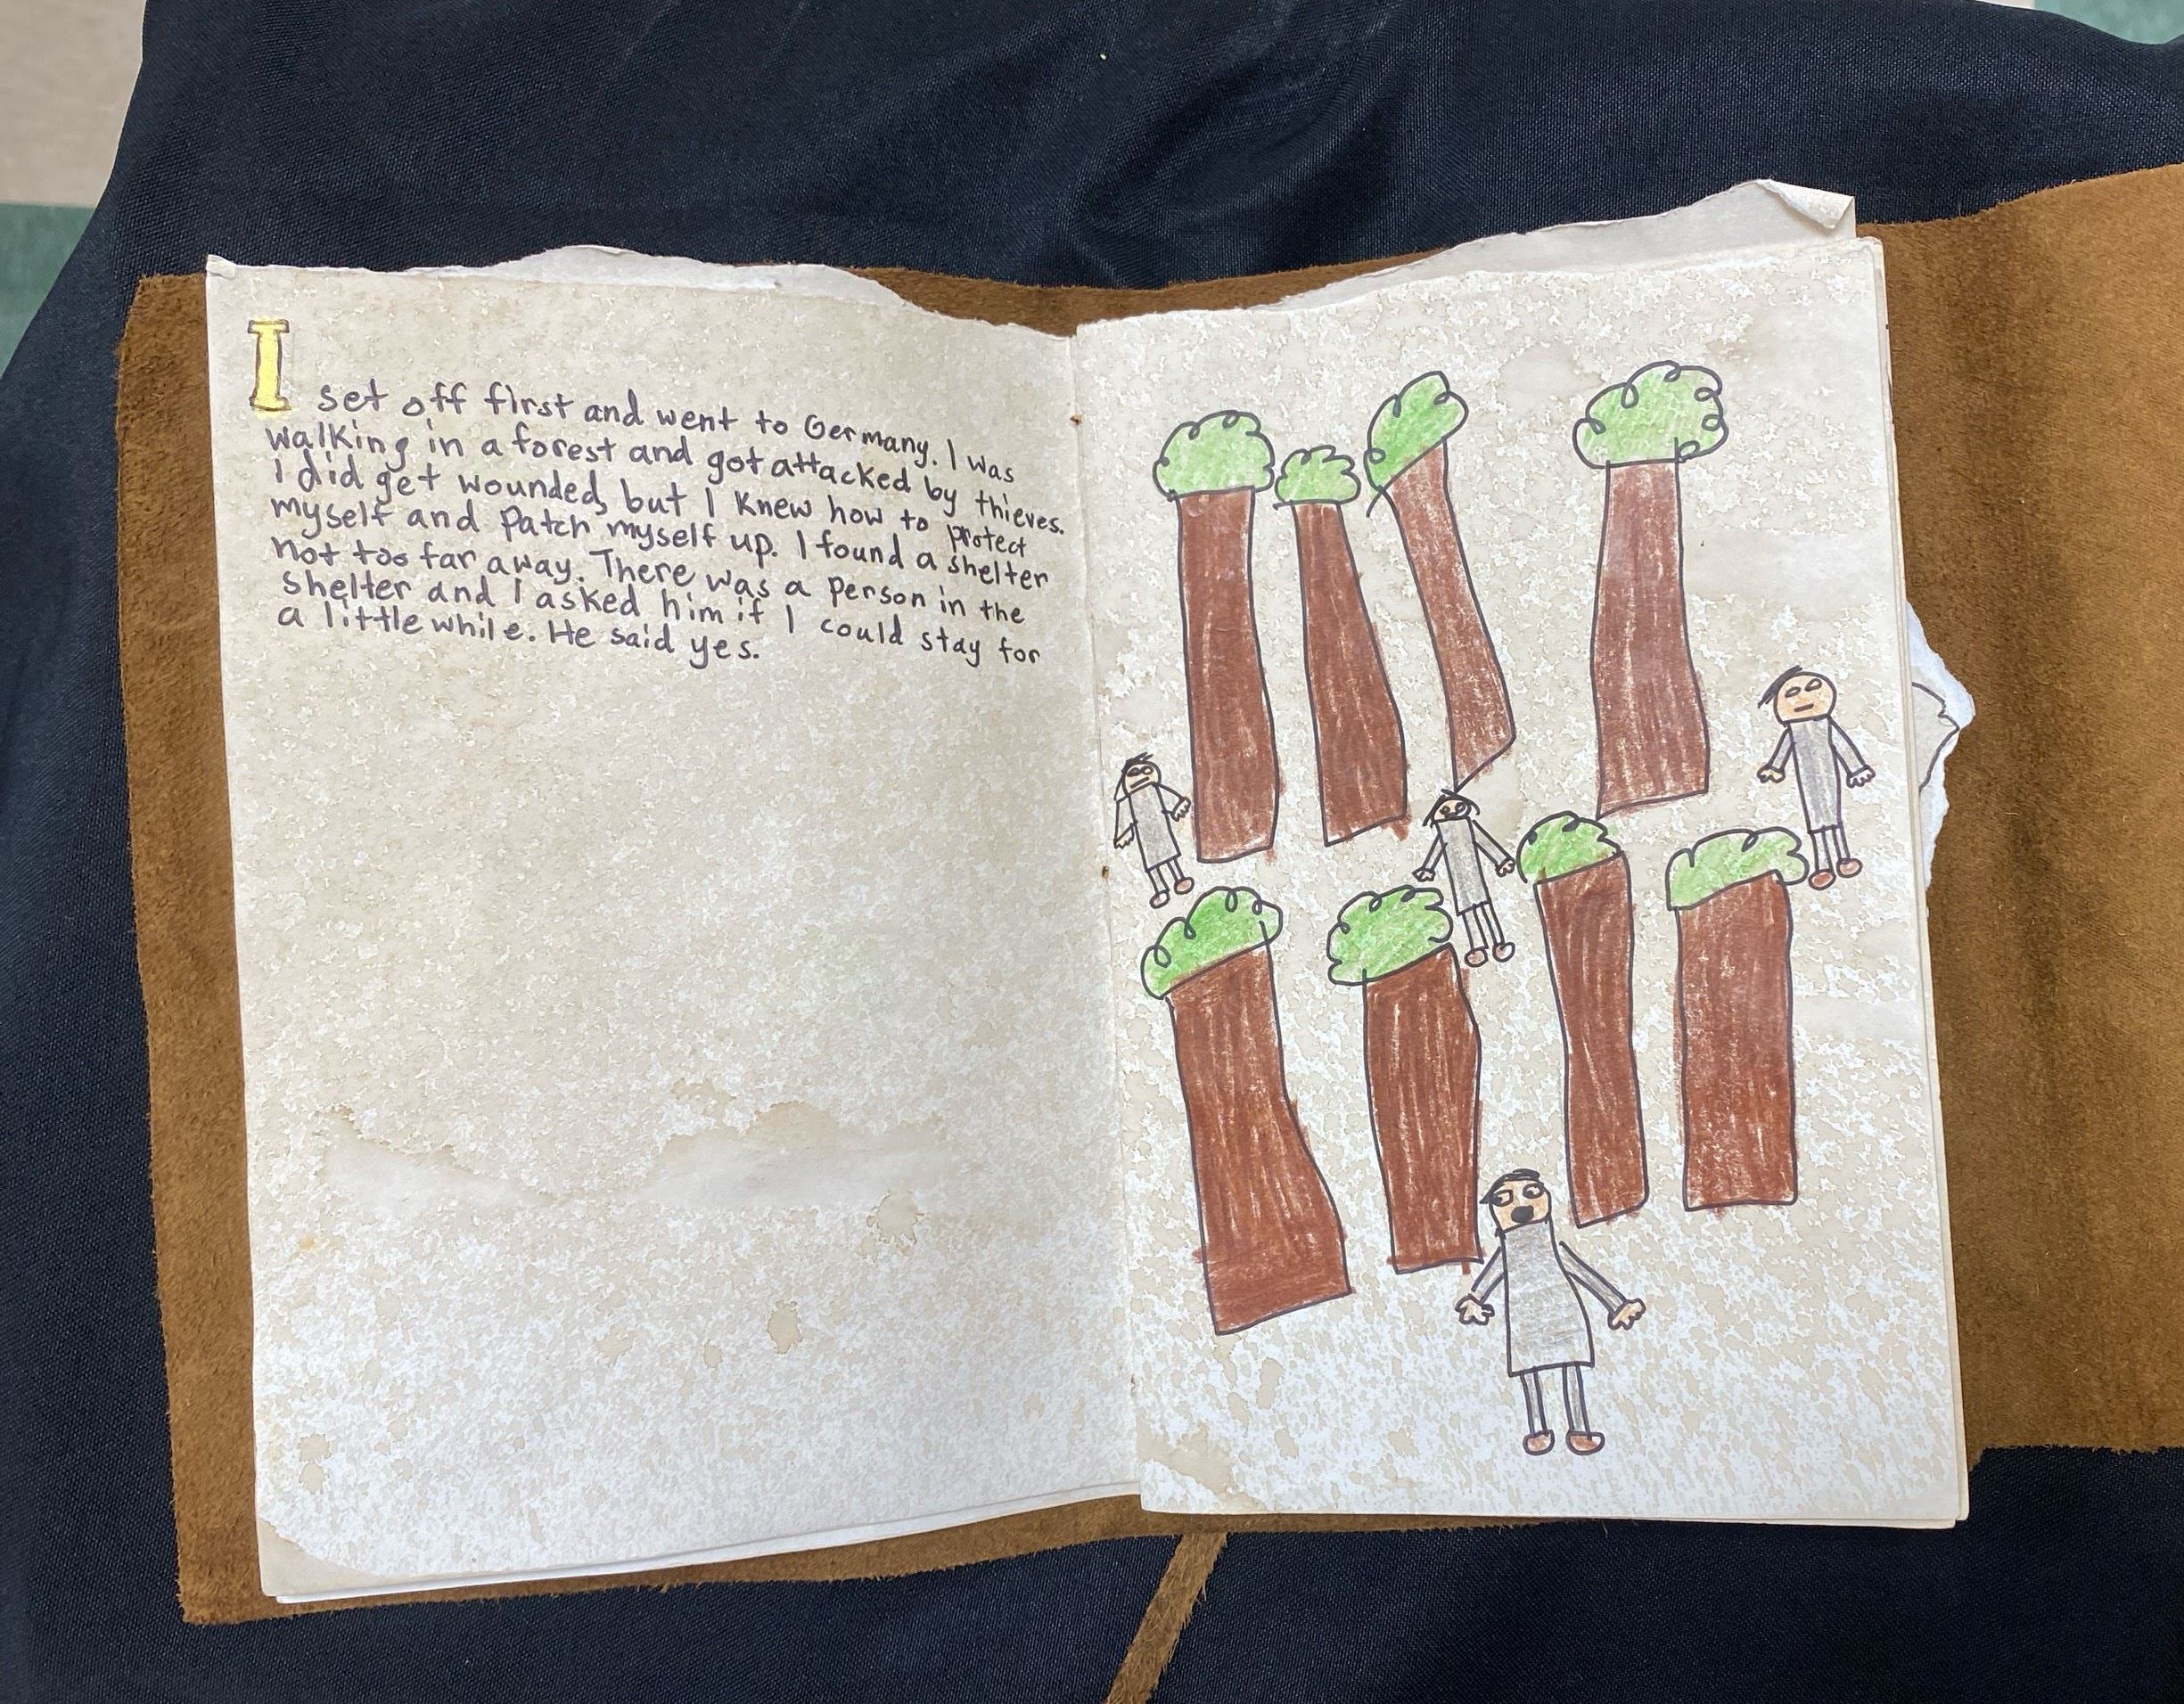 I set off first and went to Germany. I was
walking in a forest and got attacked by thieves.
I did get wounded, but I knew how to protect
myself and patch myself up. I found a shelter
not too far away. There was a person in the
shelter and I asked him if I could stay for
a little while. He said yes.